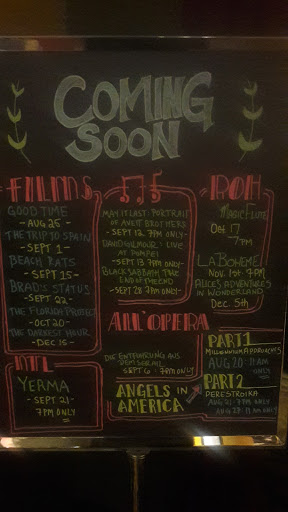 COMING
SOON
FILMS
GOOD TIME
- AUG 25 -
THE TRIP TO SPAIN
- SEPT 1 -
BEACH RATS
- SEPT 15 -
BRAD'S STATUS
- SEPT 22 -
THE FLORIDA PROJECT
- OCT 20 -
THE DARKEST HOUR
- DEC 15 -
NTL
YERMA
- SEPT 21 -
7PM ONLY
MAY IT LAST: PORTRAIT
OF AVETT BROTHERS
- SEPT 12, 7PM ONLY -
DAVID GILMOUR: LIVE
AT POMPEI
- SEPT 13 7PM ONLY -
BLACK SABBATH THE
END OF THE END
- SEPT 28 7PM ONLY -
ROH
MAGIC FLUTE
Oct 17
7PM
LA BOHEME
Nov 1st 7PM
ALICE'S ADVENTURES
IN WONDERLAND
Dec 5th
ALL'OPERA
DIE ENTFUHRUNG AUS
DEM SERAIL
SEPT 6 - 7PM ONLY -
ANGELS IN
AMERICA
PART 1
MILLENNIUM APPROACHES
AUG 20 - 11AM
ONLY
PART 2
PERESTROIKA
AUG 21 - 7PM ONLY
AUG 27 - 11AM ONLY